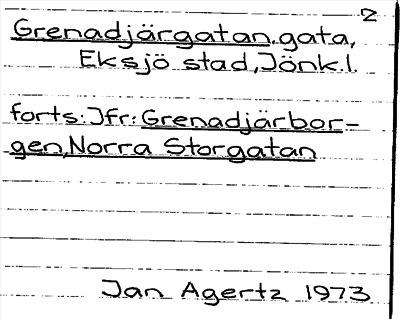 2
Grenadjärgatan, gata,
Eksjö stad, Jönk.l.
forts: Jfr: Grenadjärbor-
gen, Norra Storgatan
Jan Agertz 1973